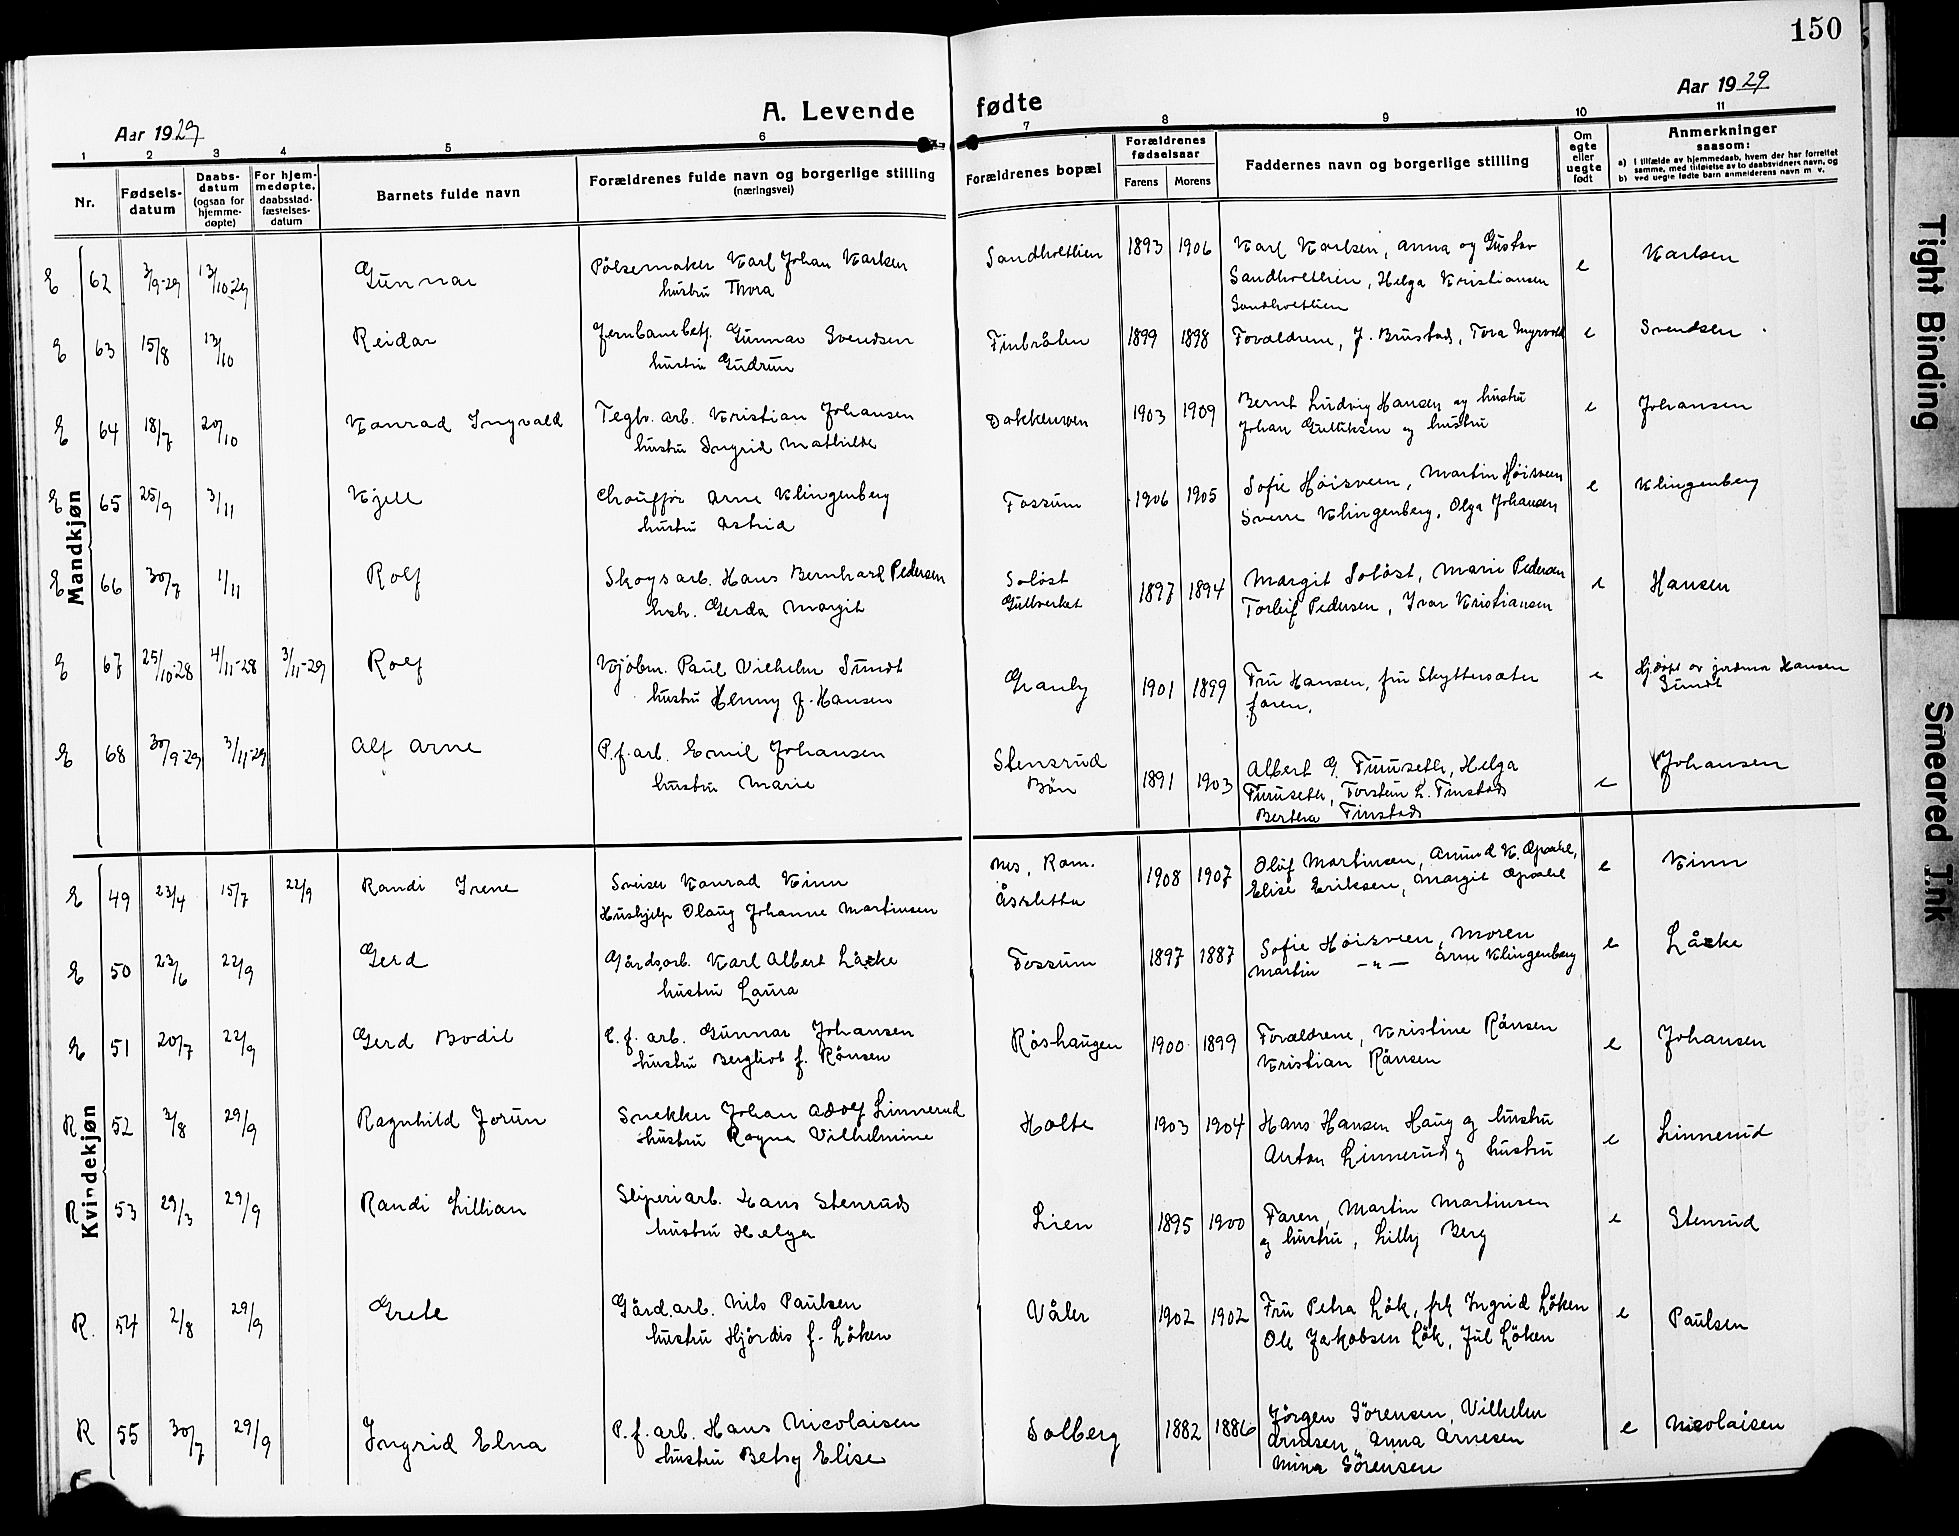 150
Aar 1929
A. Levende fødte
Aar 1929
1 2 3 4 5 6 7 8 9 10 11
Nr.
Fødsels-datum
Daabs-datum (ogsaa for hjemme-døpte)
For hjem-medøpte, daabsstad-fæstelses-datum
Barnets fulde navn
Forældrenes fulde navn og borgerlige stilling
(næringsvei)
Forældrenes bopæl
Forældrenes fødselsaar
Farens Morens
Faddernes navn og borgerlige stilling
Om egte eller uegte født
Anmerkninger
saasom:
a) I tilfælde av hjemmedaab, hvem der har forrettet
samme, med tilføielse av to daabsvidners navn, og
b) ved uegte fødte barn anmelderens navn m. v.
Mandkjøn
E 62 3/9-29 13/10-29 Gunnar Pølsemaker Karl Johan Karlsen Sandholtlien 1893 1906 Karl Karlsen, Anna og Gustav e Karlsen
hustru Thora Sandholtlien, Helga Kristiansen
Sandholtlien
E 63 15/8 13/10 Reidar Jernbanebetj. Gunnar Svendsen Finbråten 1899 1898 Forældrene, J. Brustad, Tora Myrvold e Svendsen
hustru Gudrun
E 64 18/7 20/10 Konrad Ingvald Teglv. arb. Kristian Johansen Dokkenven 1903 1909 Bernt Ludvig Hansen og hustru e Johansen
hustru Ingrid Mathilde Johan Gulliksen og hustru
E 65 25/9 3/11 Kjell Chauffør Arne Klingenberg Fossum 1906 1905 Sofie Høisveen, Martin Høisveen e Klingenberg
hustru Astrid Sverre Klingenberg, Olga Johansen
E 66 30/7 1/11 Rolf Skogsarb. Hans Bernhard Pedersen Soløst 1897 1894 Margit Soløst, Marie Pedersen e Hansen
hsh. Gerda Margit Gullverket Torleif Pedersen, Ivar Kristiansen
E 67 25/10-28 4/11-28 3/11-29 Rolf Kjøbm. Paul Vilhelm Sundt Granly 1901 1899 Fru Hansen, fru Skyttersæter e Hjdøpt av jordmor Hansen
hustru Henny f. Hansen faren. Sundt
E 68 30/9-29 3/11-29 Alf Arne P.f. arb. Emil Johansen Stensrud 1891 1903 Albert G. Furuseth, Helga e Johansen
hustru Marie Bøn Furuseth, Torstein L. Finstad
Bertha Finstad
Kvindekjøn
E 49 23/4 15/7 22/9 Randi Irene Sveiser Konrad Kinn Nes, Rom. 1908 1907 Oluf Martinsen, Amund K. Opakel, e Kinn
Hushjelp Olaug Johanne Martinsen Åssletta Elise Eriksen, Margit Opakel
E 50 23/6 22/9 Gerd Gårdsarb. Karl Albert Låcke Fossum 1897 1887 Sofie Høisveen, Moren e Låcke
hustru Laura Martin —"— Arne Klingenberg
E 51 20/7 22/9 Gerd Bodil C. f. arb. Gunnar Johansen Røshaugen 1900 1899 Forældrene, Kristine Rånsen e Johansen
hustru Bergliot f. Rånsen Kristian Rånsen
R 52 3/8 29/9 Ragnhild Jorun Snekker Johan Adolf Linnerud Holte 1903 1904 Hans Hansen Haug og hustru e Linnerud
hustru Ragna Vilhelmine Anton Linnerud og hustru
R 53 29/3 29/9 Randi Lillian Sliperiarb. Hans Stenrud Lien 1895 1900 Faren, Martin Martinsen e Stensrud
hustru Helga og hustru, Lilly Berg
R. 54 2/8 29/9 Grete Gård.arb. Nils Paulsen Våler 1902 1902 Fru Petra Løk, frk Ingrid Løken e Paulsen
hustru Hjørdis f. Løken Ole Jakobsen Løk, Jul Løken
R 55 30/7 29/9 Ingrid Elna P. f. arb. Hans Nicolaisen Solberg 1882 1886 Jørgen Sørensen, Vilhelm e Nicolaisen
hustru Betsy Elise Arnesen, Anna Arnesen
Mina Sørensen
Tight Binding
Smeared Ink